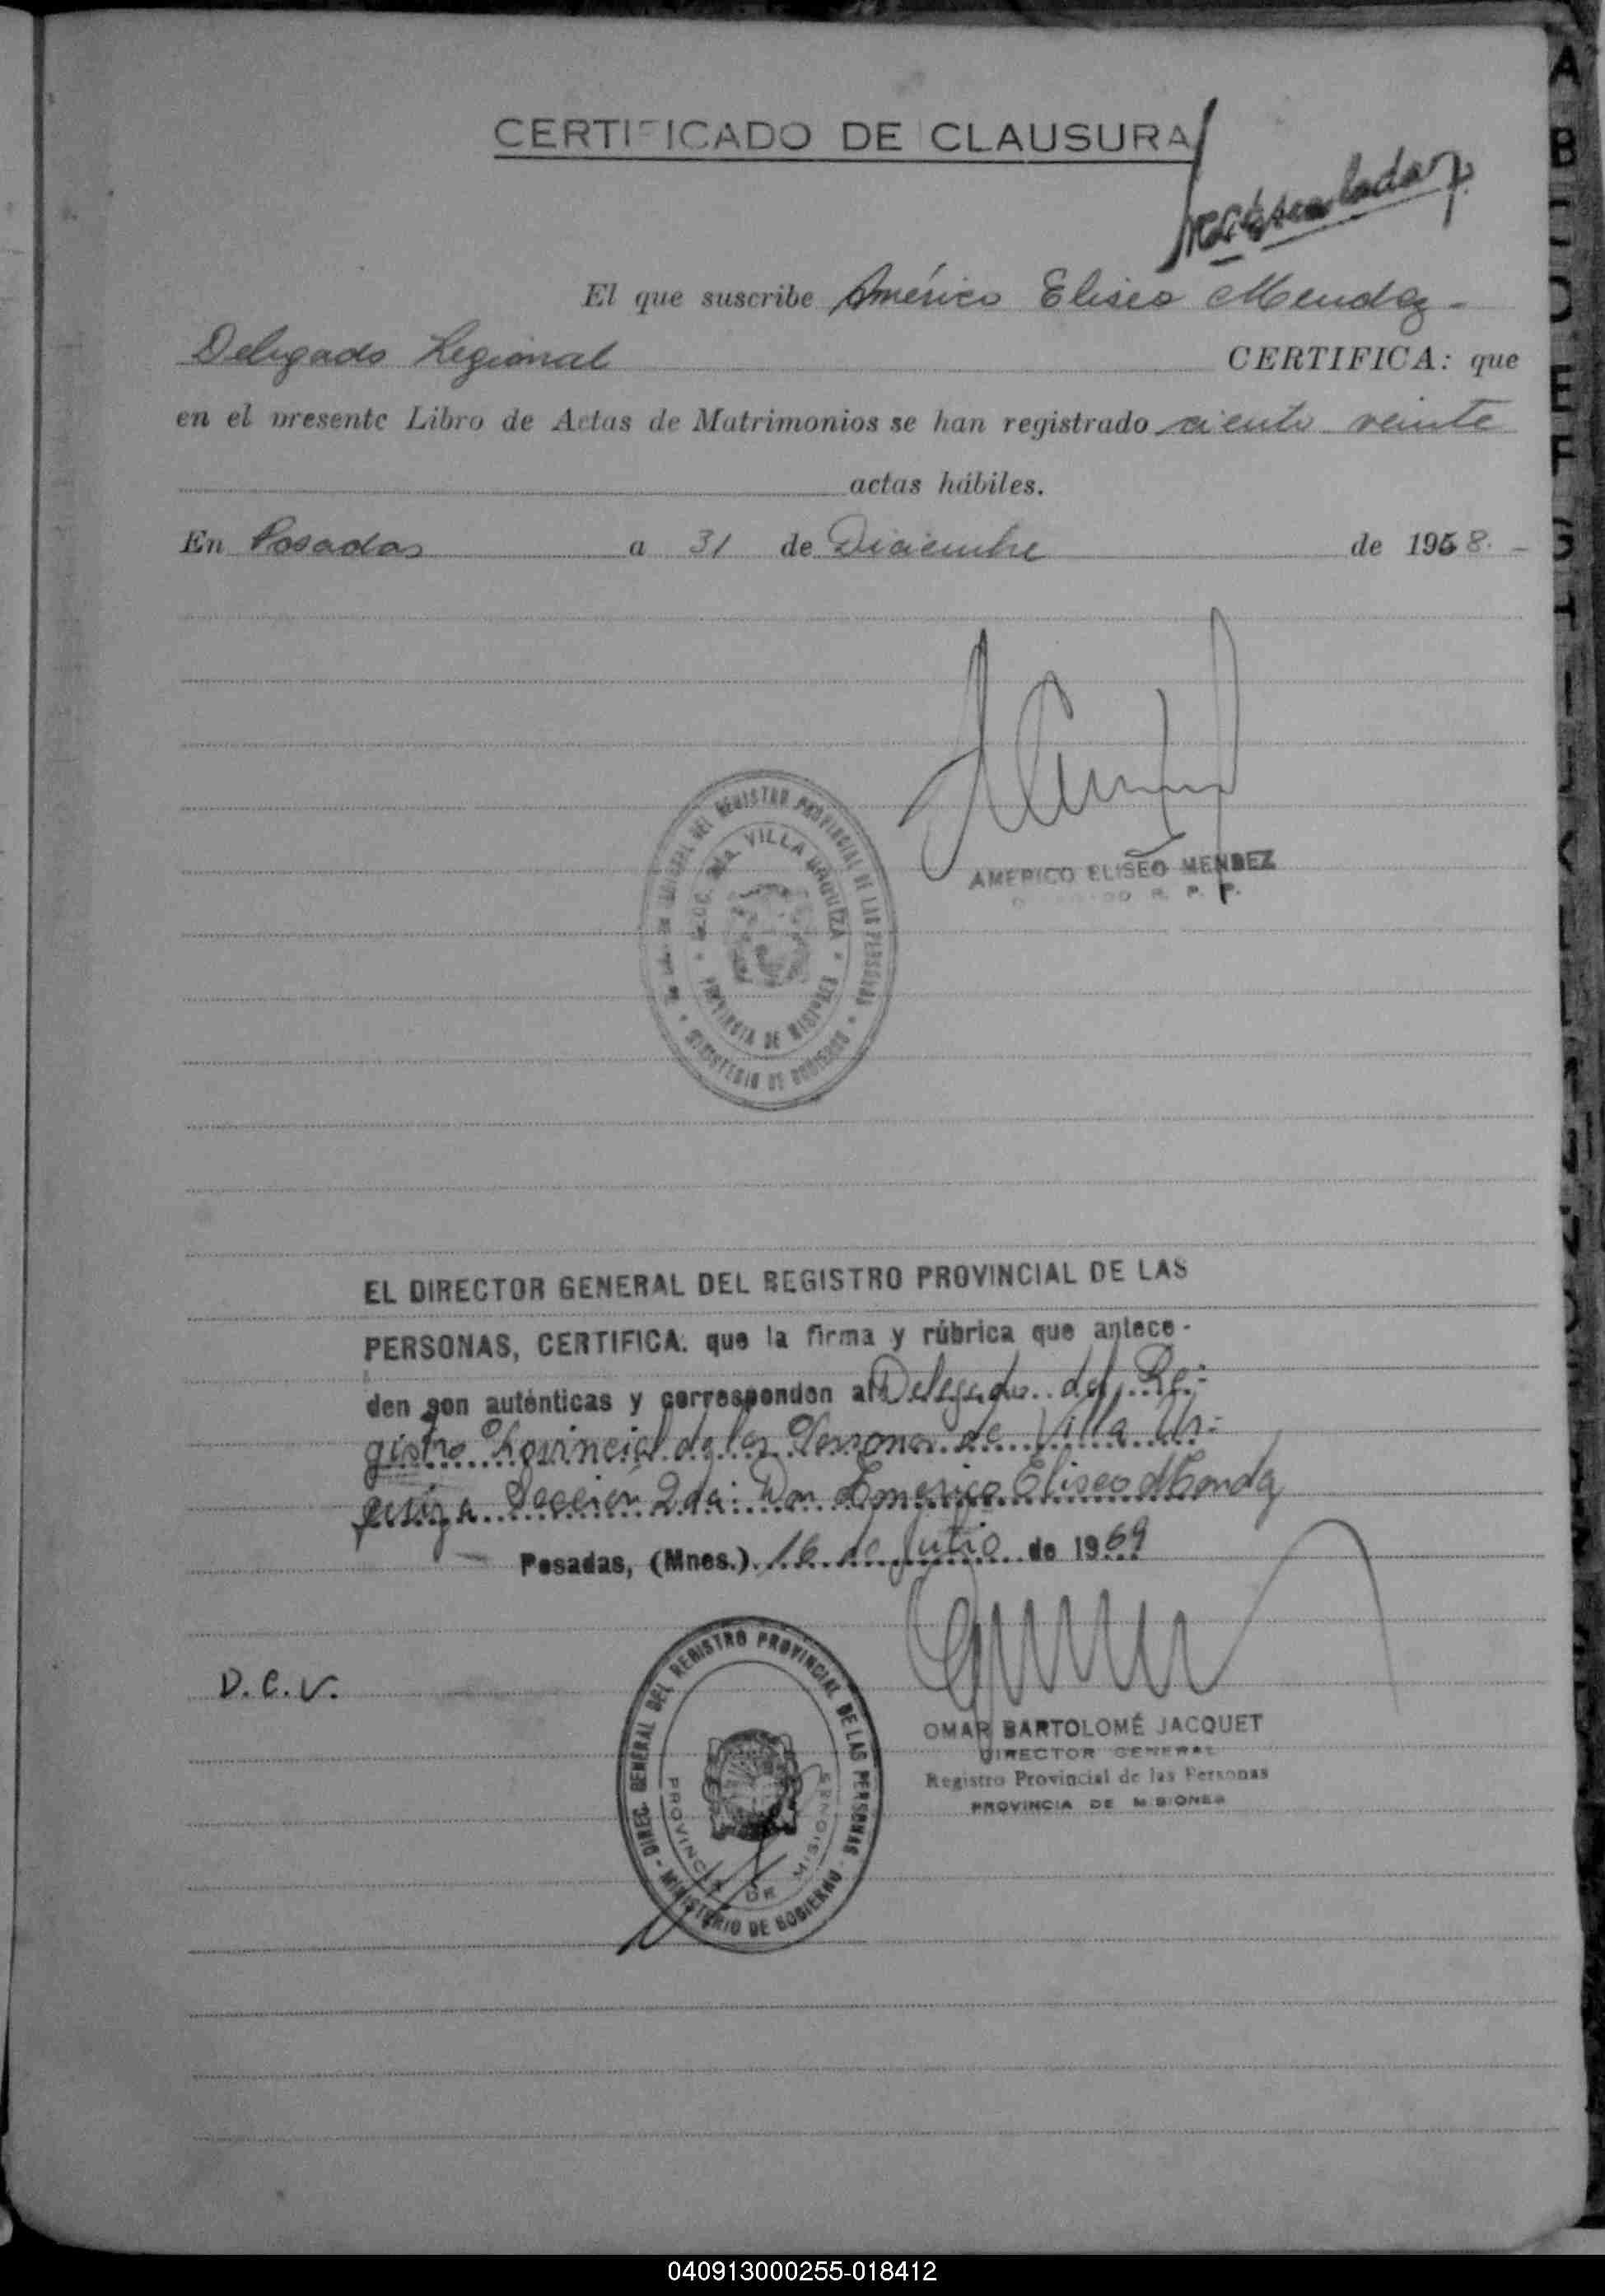 CERTIFICADO DE CLAUSURA
El que suscribe Américo Eliseo Mendez -
Delegado Regional CERTIFICA: que
en el presente Libro de Actas de Matrimonios se han registrado ciento veinte
actas hábiles.
En Posadas a 31 de Diciembre de 1968. -
AMERICO ELISEO MENDEZ
R. P. P.
DEL REGISTRO PROVINCIAL DE LAS PERSONAS
SECC. 2da. VILLA URQUIZA
PROVINCIA DE MISIONES
MINISTERIO DE GOBIERNO
EL DIRECTOR GENERAL DEL REGISTRO PROVINCIAL DE LAS
PERSONAS, CERTIFICA: que la firma y rúbrica que antece -
den son auténticas y corresponden al Delegado del Re-
gistro Provincial de las Personas de Villa Ur-
quiza Sección 2da. Don Americo Eliseo Mendez
Posadas, (Mnes.) 16 de Julio de 1969
D.C.V.
DIREC. GENERAL DEL REGISTRO PROVINCIAL DE LAS PERSONAS - MINISTERIO DE GOBIERNO -
PROVINCIA DE MISIONES
OMAR BARTOLOMÉ JACQUET
DIRECTOR GENERAL
Registro Provincial de las Personas
PROVINCIA DE MISIONES
040913000255-018412